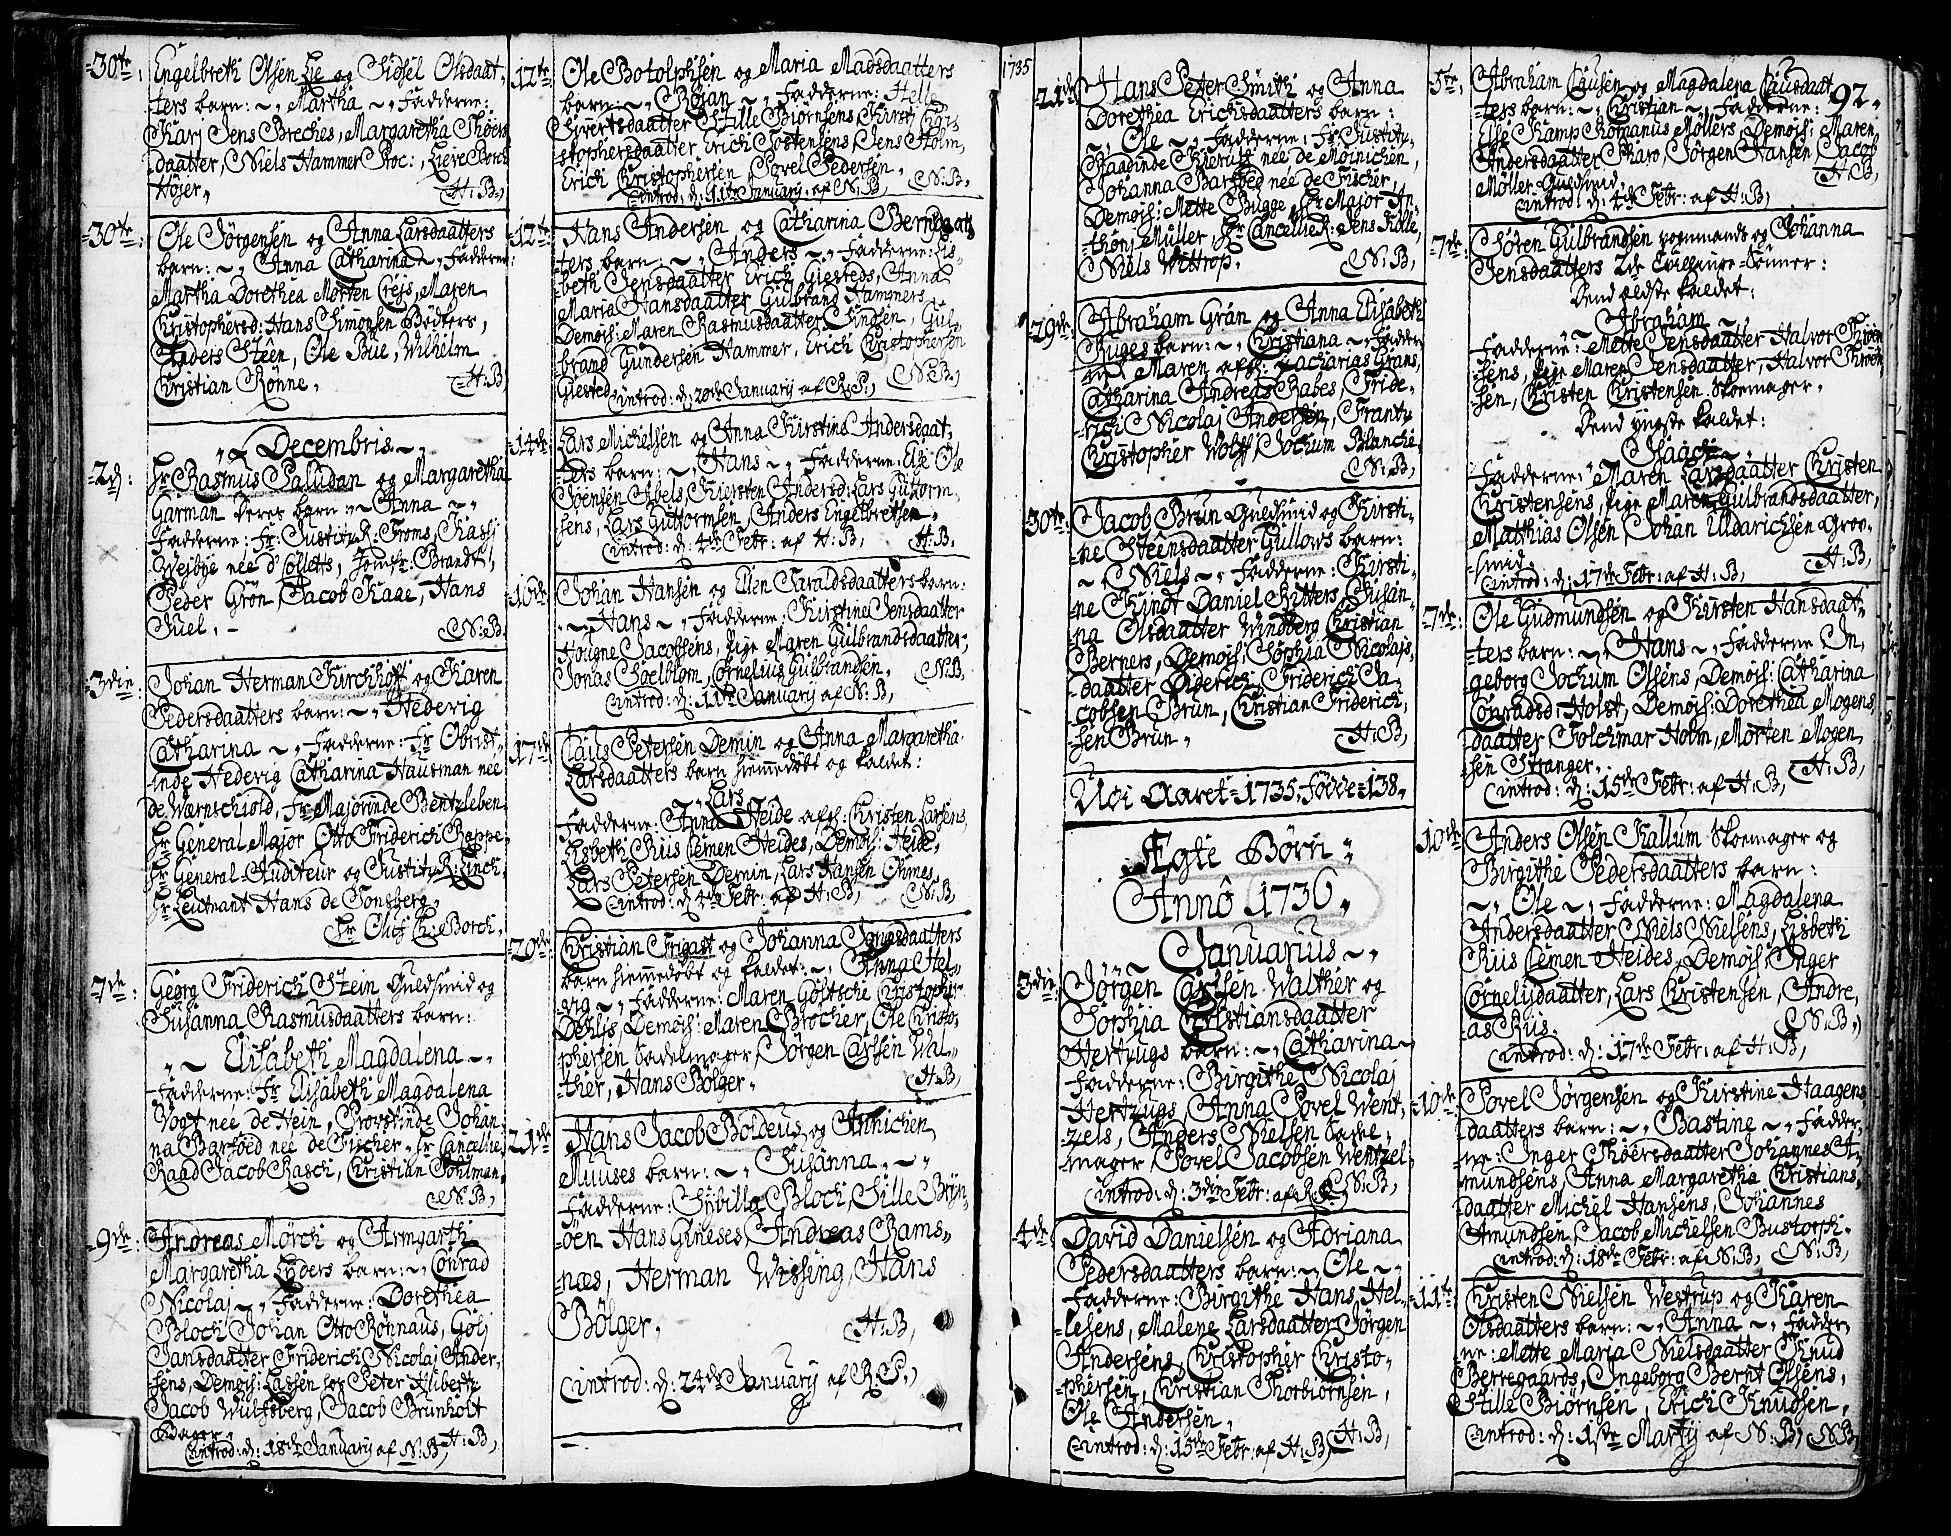 -30te, Engelbreth Olsen Lie og Sidsel Olsdaat,
ters barn: ~, Martha ~, Fadderne:
Karj Jens Breches, Margaretha Thoers
daatter, Niels Hammer Proc:,
Højer,
H:B,
-30te: Ole Jørgensen og Anna Larsdaatters
barn: ~, Anna Catharina ~, Fadderne:
Martha Dorethea Morten Crejs, Maren
Christophersd: Hans Simonsen Bødkers,
Anders Steen, Ole Bue, Wilhelm
Christian Rønne,
H:B,
Decembris ~,
-2d: Hr Rasmus Paludan og Margaretha
Garman deres barn ~ Anna ~,
Fadderne: Fr: Justitz R: Froms,
Wejbye née d'Colletts, Jomfr: Brandt,
Peder Grøn, Jacob Kaae, Hans
Juel, -
N:B,
-3die: Johan Herman Kirchhoff og Karen
Pedersdaatters barn: ~, Hedevig
Catharina ~, Fadderne: Fr Obrist-
inde Hedevig Catharina Hausman née
de Wærnschiold, Fr Majorinde Bentzleben
Hr General Major Otto Friderich Rappe,
Hr General-Auditeur og Justitz R: Finch,
Hr Leutnant Hans de Tonsberg,
Hr Oluf Ch: Borch,
-7de: Georg Friderich Stein Guldsmid og
Susanna Rasmusdaatters barn:
~ Elisabeth Magdalena ~,
Fadderne: Fr Elisabeth Magdalena
Vogt née de Hein, Provstinde Johan-
na Barfoed née de Fischer, Hr Cancellie
Raad Jacob Rasch, Christian Pohlman,
N:B,
-9de: Andreas Mørch og Armgarth
Margaretha Lyders barn: ~, Conrad
Nicolaj ~, Fadderne: Dorethea
Bloch Johan Otto Rønnaus, Gølj
Jansdaatter Friderich Nicolaj Ander-
sens, Demois: Lassen hos Peter Kliberth
Jacob Wulfsberg, Jacob Brunholt
Bager,
introd: d: 18de Januarij af N:B, H:B,
-12te: Ole Botolphsen og Maria Madsdaatters
barn: ~, Børan ~, Fadderne: Helle
Sjvertsdaatter Stille Biørnsens, Kirst: Chri-
stophersdaatter Erich Tostensens, Jens Holm,
Erich Christophersen, Povel Pedersen,
introd: d: 11te January: af N:B, N:B,
-12te: Hans Andersen og Catharina Berndsdaat,
ters barn: ~, Anders ~, Fadderne: Lis-
beth Jensdaatter Erich Giesteds, Anna
Maria Hansdaatter Gulbrand Hammers,
Demois: Maren Rasmusdaatter Findsen, Gul-
brand Gundersen Hammer, Erich Christophersen
Giested, introd: d: 20de January af R:P:, N:B,
-14de: Lars Michelsen og Anna Kirstine Andersdaat,
ters barn: ~, Hans ~, Fadderne: Else Ole
Svensen Abels, Kiersten Andersd: Lars Guttorm,
sens, Lars Guttormsen, Anders Engelbretsen,
introd: d: 4de Febr: af H:B, H:B,
-16de: Johan Hansen og Ellen Taraldsdaatters barn:
~, Hans ~, Fadderne: Kirstine Jensdaatter
Hougne Jacobsens, Pige Maren Gulbrandsdaatter,
Jonas Soelblom, Cornelius Gulbrandsen,
introd: d: 11te January af N:B, N:B,
-17de: Claus Petersen Demin og Anna Margaretha
Larsdaatters barn hiemmedøbt og kaldet:
Lars
Fadderne: Anna Heide afg: Christen Larsens,
Lisbeth Rius Clemen Heides, Demois: Heide,
Lars Petersen Demin, Lars Hansen Ohmes,
introd: d: 4de Febr: af H:B, N:B,
-20de: Christian Frigast og Johanna Jensdaatters
barn hiemmedøbt og kaldet: ~, Anna Hel-
vig ~, Fadderne: Maren Gøttsche Christopher
Dehlis, Demois: Maren Brocher, Ole Christo,
phersen Sadelmager, Jørgen Carlsen Wal-
ther, Hans Bølger,
H:B,
-21de: Hans Jacob Boldeus og Annichen
Muuses barn: ~, Susanna ~,
Fadderne: Sybilla Bloch, Sille Bryn-
øen Hans Gineses, Andreas Rams-
næs, Herman Wissing, Hans
Bølger,
H:B,
introd: d: 24de January af R:P:,
1735
-21de Hans Peter Smith og Anna
Dorethea Erichsdaatters barn:
~, Ole ~, Fadderne: Fr: Justitz-
Raadinde Hierulf née de Møinichen,
Johanna Barfoed née de Fischer,
Demois: Mette Bugge, Hr Major An-
thonj Müller, Hr Cancellie R: Jens Kolle,
Niels Wittrop,
N:B,
-29de: Abraham Grân og Anna Elisabeth
Buges barn: ~, Christiana ~, Fadder-
ne: Maren afg: Zacharias Grans,
Catharina Andreas Rabes, Fride-
rich Nicolaj Andersen, Frantz
Christopher Wolff, Jochum Blanche,
N:B,
-30te: Jacob Brun Guldsmid og Kirsti-
ne Steensdaatter Gullows barn:
~, Niels ~, Fadderne: Kirsti-
ne Kindt Daniel Ritters, Susan-
na Olsdaatter Windberg Christian
Berners, Demois: Sophia Nicolajs-
daatter, Diderich Friderich Ja-
cobsen Brun, Christian Friderich,
sen Brun,
H:B,
Udi Aaret 1735. fødde 138,
Ægte Børn:,
Annô 1736,
Januarius ~,
3die Jørgen Carlsen Walther og
Sophia Christiansdaatter
Hertzugs barn: ~, Catharina ~
Fadderne: Birgithe Nicolaj
Hertzugs, Anna Povel Went,
zels, Anders Nielsen Parke,
mager, Povel Jacobsen Wentzel
introd: d: 3die Febr: af R:P: N:B,
4de David Danielsen og Adriana
Pedersdaatters barn: ~, Ole ~,
Fadderne: Birgithe Hans Hel-
lesens, Malene Larsdaatter Jørgen
Andersens, Christopher Christo-
phersen, Christian Thorbiørnsen,
Ole Andersen,
introd: d: 15de Febr: af H:B, H:B,
92.
5te, Abraham Clausen og Magdalena Clausdaat
ters barn: ~, Christian ~, Fadderne:
Else Kamp Romanus Møllers, Demois: Maren
Andersdaatter Pharo, Jørgen Hansen, Jacob
Møller Guldsmid
H:B,
introd: d: 4de Febr: af H:B,
-7de: Søren Gulbrandsen og Johanna
Jensdaatters 2de Tvillinge-Sønner:
Dend ældste kaldet:
Abraham ~,
Fadderne: Mette Jensdaatter Halvor Thron
sens, Pige Maren Jensdaatter, Halvor Thron,
sen, Christen Christensen Skoemager,
Dend yngste kaldet:
Isaach ~,
Fadderne: Maren Larsdaatter Christen
Christensens, Pige Maren Gulbrandsdaatter,
Matthias Olsen, Johan Uldarichsen Grov-
smid,
introd: d: 17de Febr: af H:B, H:B,
-7de: Ole Gudmundsen og Kirsten Hansdaat,
ters barn: ~, Hans ~, Fadderne In-
geborg Jochum Olsens, Demois: Catharina
Conradsd: Holst, Demois: Dorethea Mogens,
daatter, Folchmar Holm, Morten Mogen,
sen Stranger,
introd: d: 15de Febr: af H:B, H:B,
-10de Anders Olsen Kallum Skoemager og
Birgithe Pedersdaatters barn:
~, Ole ~, Fadderne: Magdalena
Andersdaatter Niels Nielsens, Lisbeth
Rius Clemen Heides, Demois: Inger
Cornelijdaatter, Lars Christensen, Andre,
as Rius,
N:B,
introd: d: 17de Febr: af H:B,
-10de Povel Jørgensen og Kirstine Haagens
daatters barn: ~, Bastine ~, Fadder-
ne: Inger Thoersdaatter Johannes A-
mundsens, Anna Margaretha Christians,
daatter Michel Hansens, Johannes
Amundsen, Jacob Michelsen Bustorph.
introd: d: 18de Febr: af N:B, N:B,
-11te: Christen Nielsen Westrup og Karen
Olsdaatters barn: ~, Anna ~, Fadder,
ne: Mette Maria Nielsdaatter Knud
Berregaards, Ingeborg Bernt Olsens,
Stille Biørnsen, Erich Knudsen,
introd: d: 1ste Martij af N:B, NB,